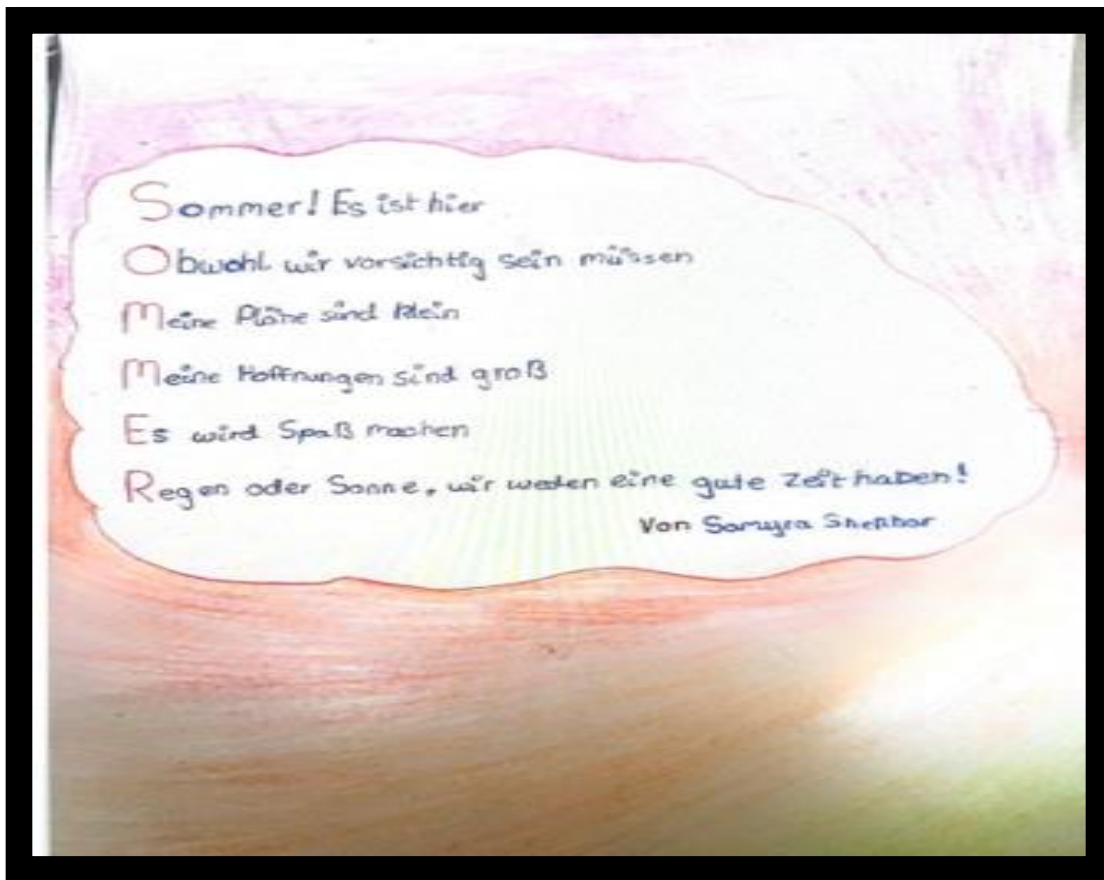 Sommer! Es ist hier
Obwohl wir vorsichtig sein müssen
Meine Pläne sind klein
Meine Hoffnungen sind groß
Es wird Spaß machen
Regen oder Sonne, wir werden eine gute Zeit haben!
Von Samyra Shekhar